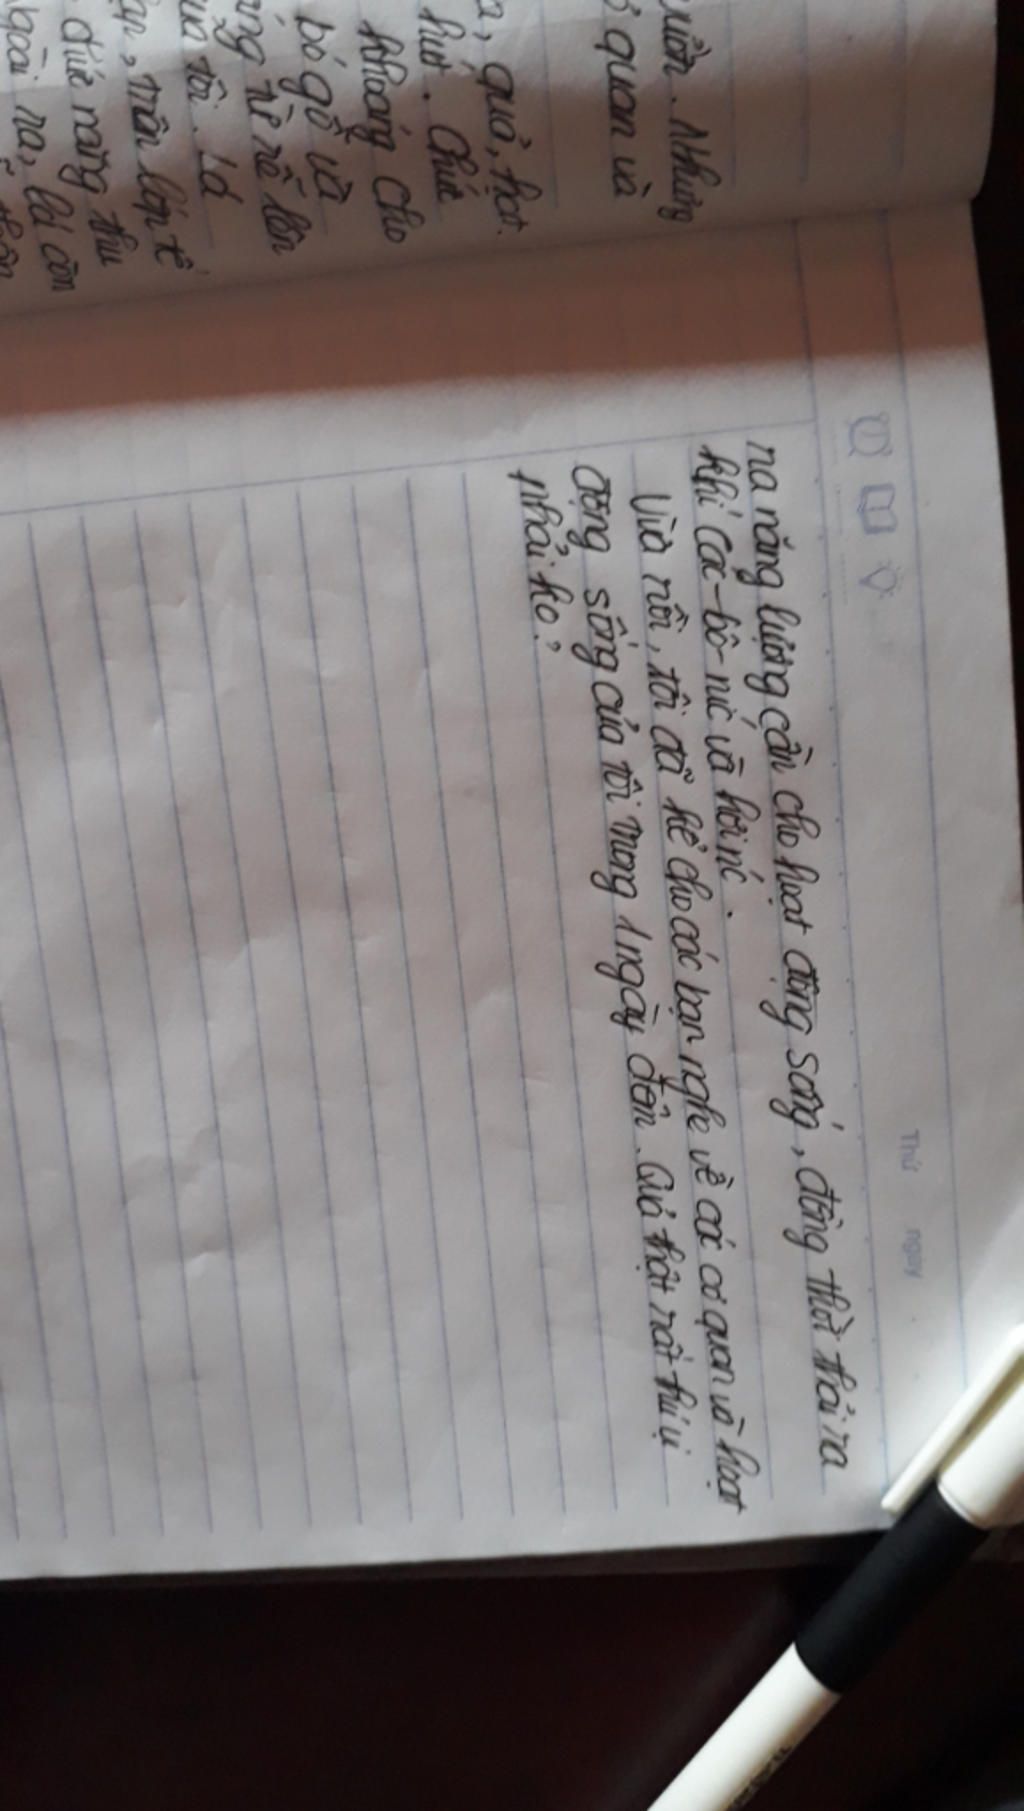 muôn. Nhưng
quan và
quả, hạt.
hút. Chức
khoáng cho
bó gỗ và
rễ nỗ lên
tôi. Lá
, trên lớp tế
chức năng thu
ngoài ra, lá còn
Thứ ngày
ra năng lượng cần cho hoạt động sống, đồng thời thải ra
khí các-bô-níc và hơi nc.
Vừa rồi, tôi đã kể cho các bạn nghe về các cơ quan và hoạt
động sống của tôi trong 1 ngày đêm. Quả thật rất thú vị
phải ko?